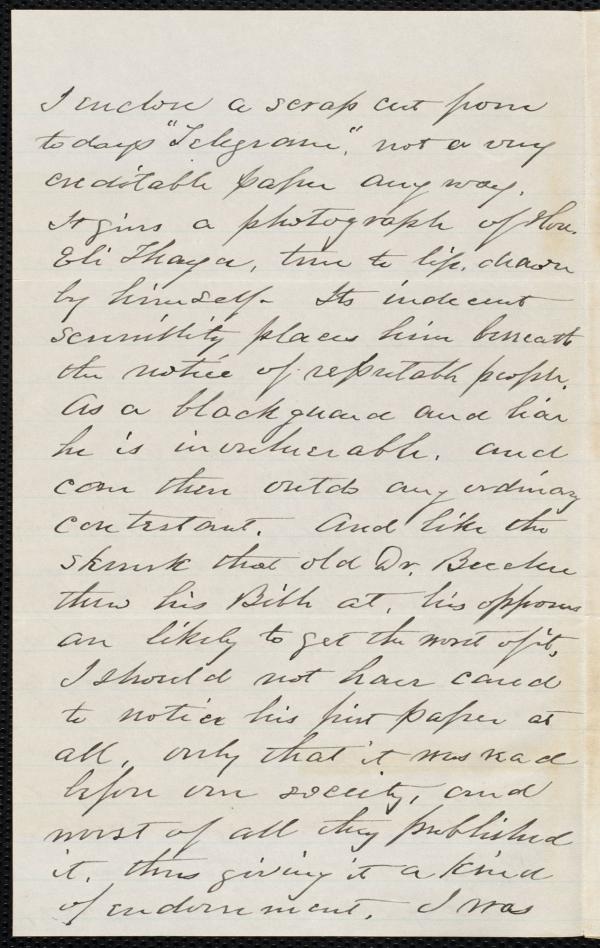 I enclose a scrap cut from
todays "Telegram", not a very
creditable paper any way.
It gives a photograph of Hon.
Eli Thayer, true to life, drawn
by himself. Its indecent
scurrility places him beneath
the notice of reputable people.
As a blackguard and liar
he is invulnerable, and
can then outdo any ordinary
contestant. And like the
skunk that old Dr. Beecher
threw his Bible at, his opposers
are likely to get the worst of it,
I should not have cared
to notice his first paper at
all, only that it was read
before our society, and
worst of all they published
it, thus giving it a kind
of endorsement. I was